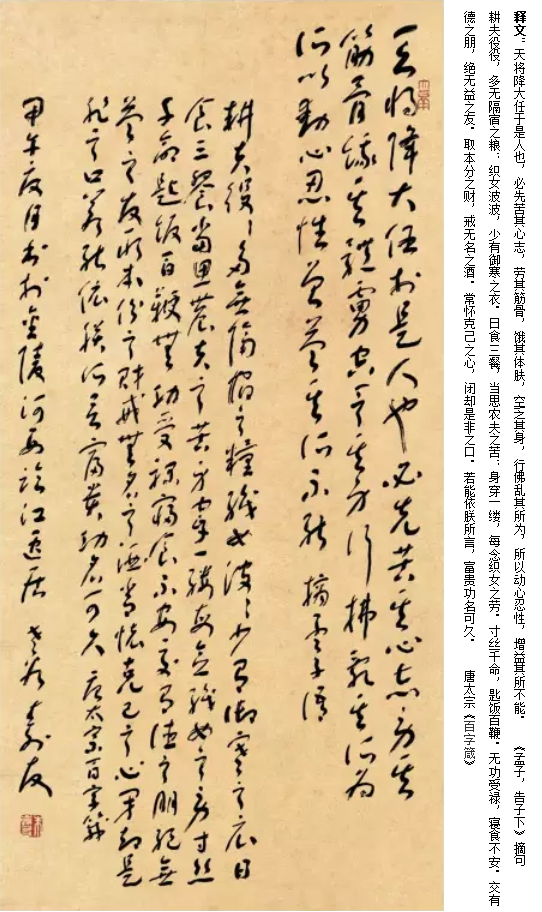 释文：天将降大任于是人也，必先苦其心志，劳其筋骨，饿其体肤，空乏其身，行佛乱其所为，所以动心忍性，增益其所不能。 《孟子，告子下》摘句
耕夫役役，多无隔宿之粮；织女波波，少有御寒之衣。日食三餐，当思农夫之苦；身穿一缕，每念织女之劳。寸丝千命，匙饭百鞭。无功受禄，寝食不安。交有
德之朋，绝无益之友。取本分之财，戒无名之酒。常怀克己之心，闭却是非之口。若能依朕所言，富贵功名可久。 唐太宗《百字箴》
天将降大任於是人也必先苦其心志劳其
筋骨餓其體膚空乏其身行拂亂其所为
所以動心忍性曾益其所不能 摘孟子语
耕夫役役多無隔宿之糧織女波波少有御寒之衣日
食三餐當思農夫之苦身穿一縷每念織女之劳寸丝
千命匙飯百鞭無功受禄寢食不安交有德之朋絕無
益之友取本份之財戒無名之酒常懷克己之心闭却是
非之口若能依朕所言富贵功名可久 唐太宗百字箴
甲午夏月书於金陵河西 江 居 友